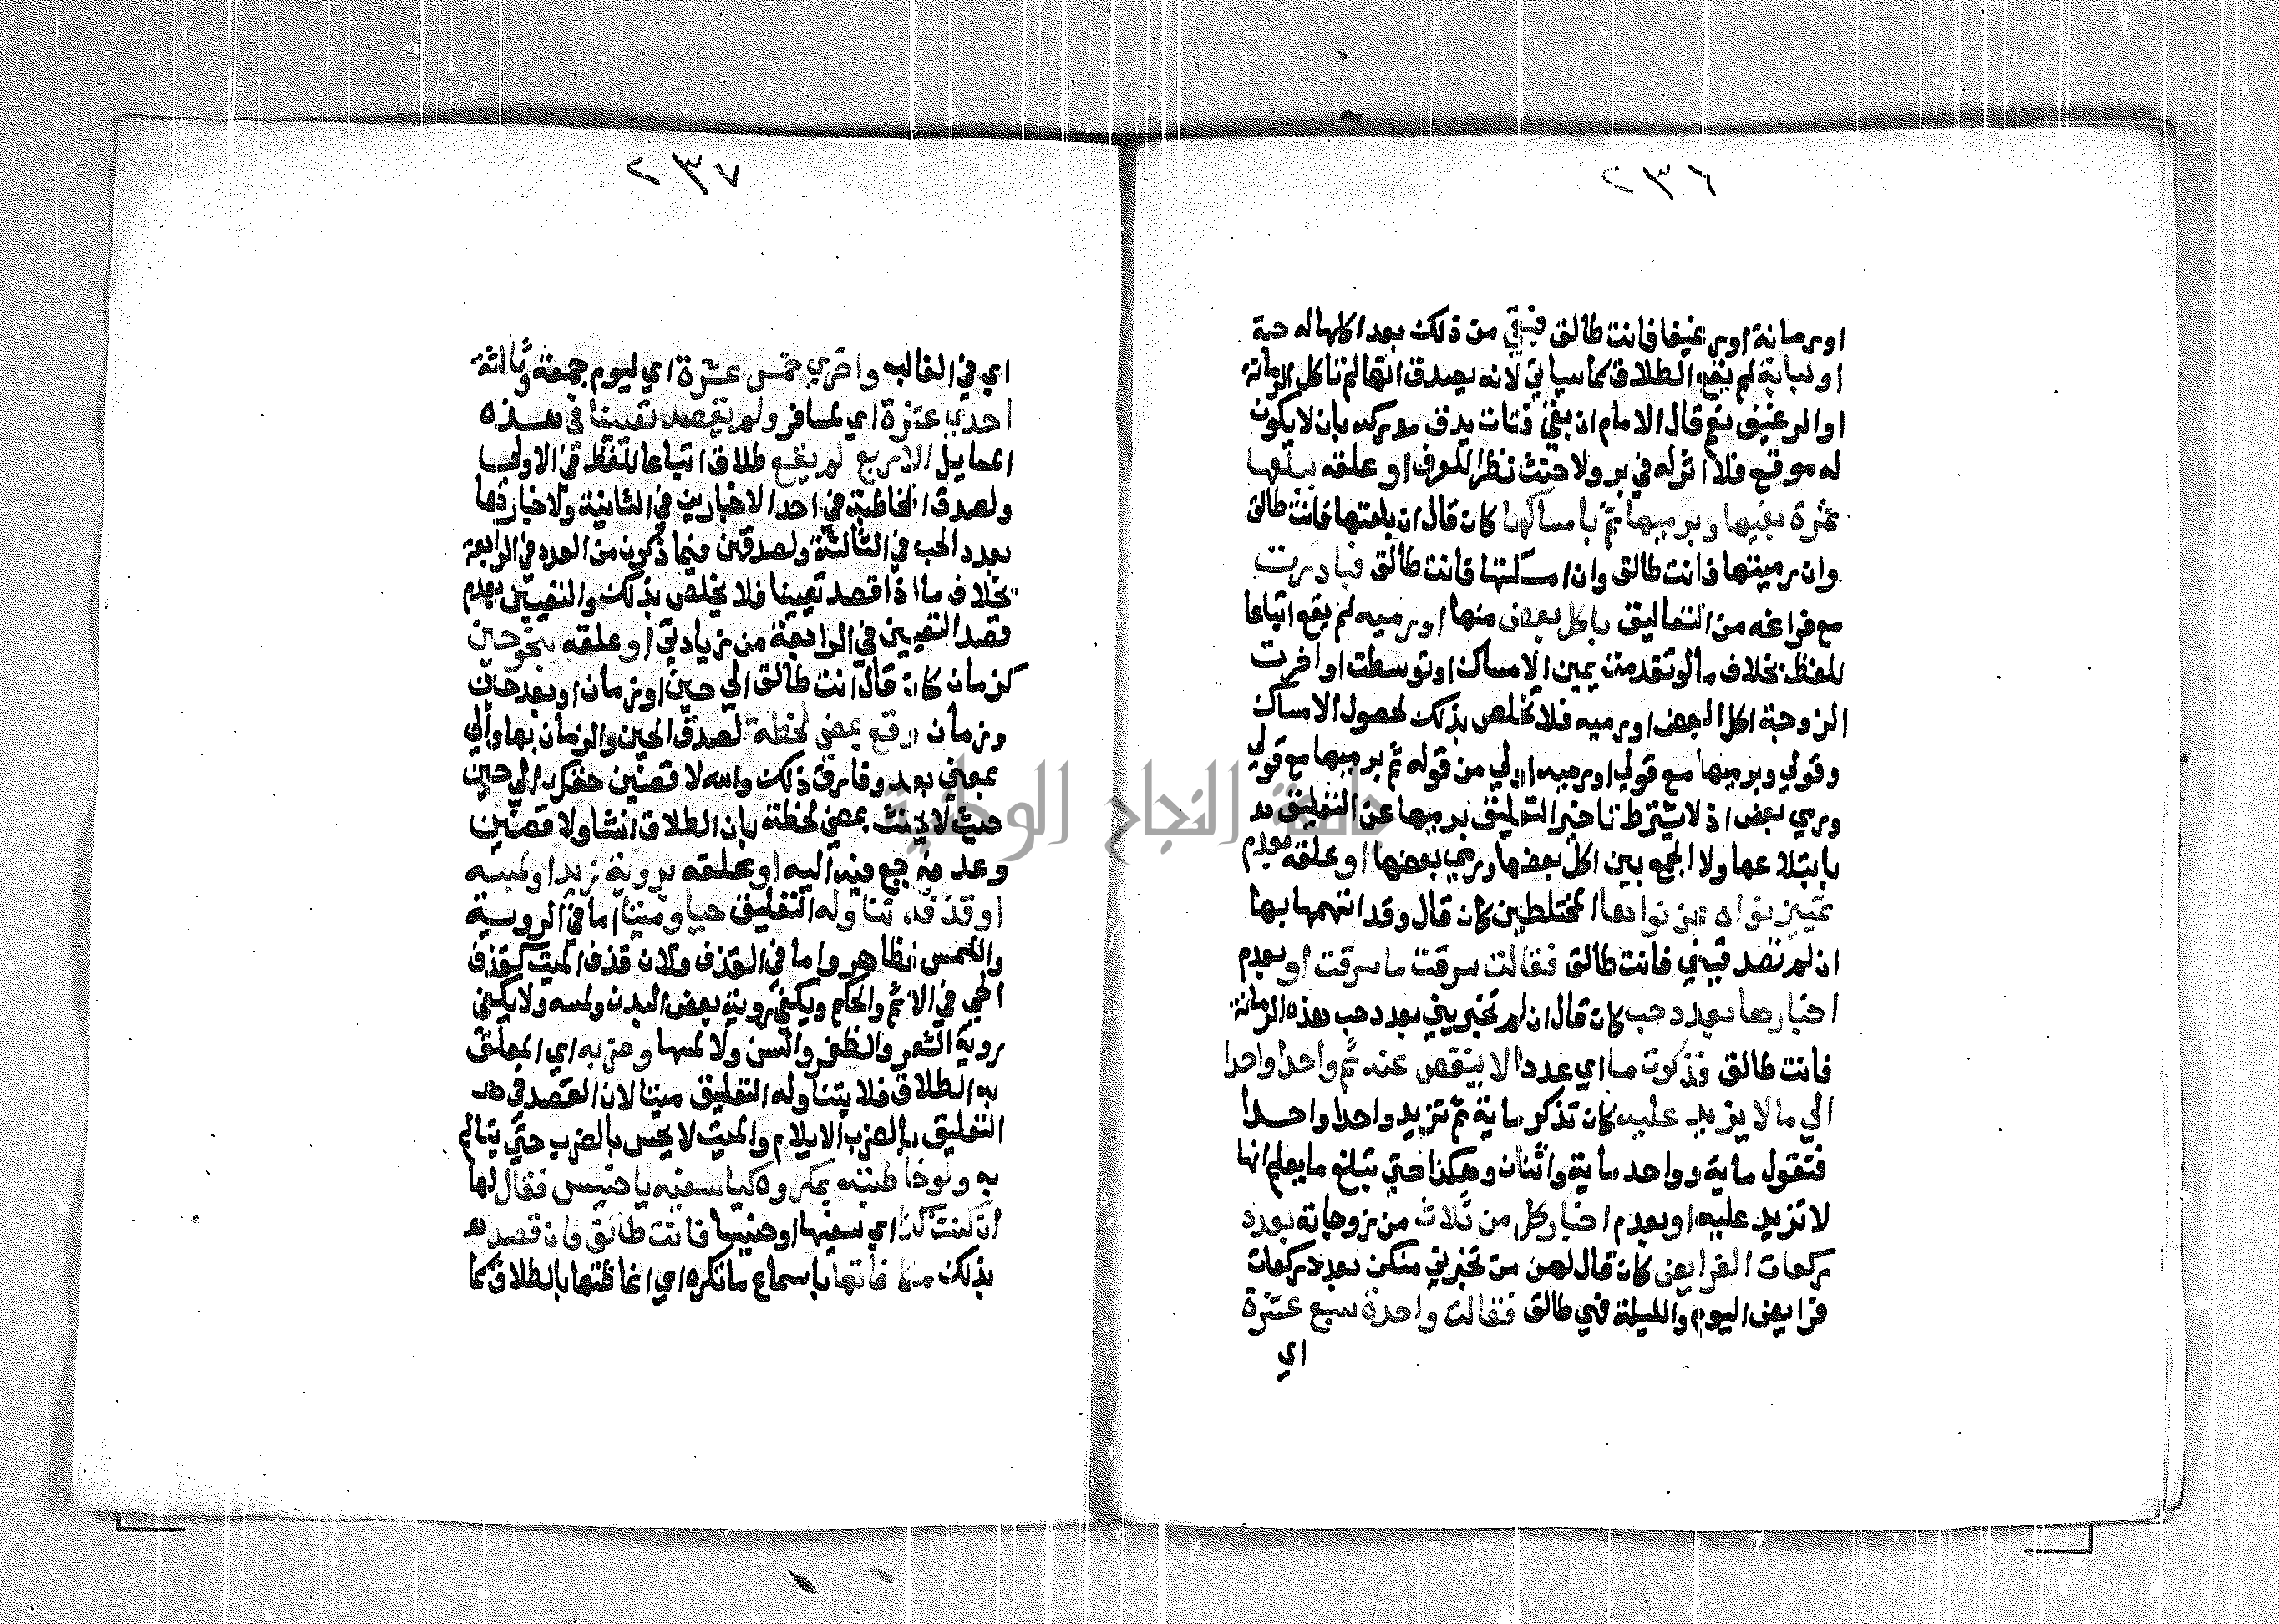 ٢٣٦
او رمانة او رغيفا فانت طالق فبقي من ذلك بعد اكلها له حبة
او لبابة لم يقع الطلاق كما سياتي لانه يصدق انها لم تاكل الرمانة
او الرغيف نعم قال الامام ان بقي فتات يدق مدركه بان لا يكون
له موقع فلا اثر له في بر ولا حنث نظرا للعرف او علقه ببلعها
تمرة بفيها وبرميها ثم بامساكها كان قال ان بلعتها فانت طالق
وان رميتها فانت طالق وان امسكتها فانت طالق فبادرت
مع فراغه من التعاليق باكل بعض منها او رميه لم يقع اتباعا
للفظ بخلاف ما لو تقدمت يمين الامساك او توسطت او اخرت
الزوجة اكل البعض او رميه فلا تخلص بذلك لحصول الامساك
وقولي وبرميها مع قولي او رميه اولي من قوله ثم برميها مع قولي
ورمي بعض اذ لا يشترط تاخير التعليق برميها عن التعليق
بابتلاعها ولا الجمع بين اكل بعضها ورمي بعضها او علقه بعدم
تمييز نواه من نواها المختلطين كان قال وقد اتهمها بها
ان لم تصدقيني فانت طالق فقالت سرقت ما سرقت او بعدم
اخبارها بعدد حب كان قال ان لم تخبريني بعدد حب هذه الرمانة
فانت طالق فذكرت ما اي عددا لا ينقص عنه ثم واحدا واحدا
الي ما لا يزيد عليه كان تذكر ماية ثم تزيد واحدا واحدا
فتقول ماية وواحد ماية واثنان وهكذا حتي تبلغ ما يعلم انها
لا تزيد عليه او بعدم اخبار كل من ثلاث من زوجاته بعدد
ركعات الفرايض كان قال لهن من تخبرني منكن بعدد ركعات
فرايض اليوم والليلة فهي طالق فقالت واحدة سبع عشرة
اي
٢٣٧
اي في الغالب واخري خمس عشرة اي ليوم جمعة وثالثة
احدي عشرة اي لمسافر ولم يقصد تعيينا في هذه
المسايل الاربع لم يقع طلاق اتباعا للفظ في الاولي
ولصدق المخاطبة في احد الاخبارين في الثانية ولاخبارها
بعدد الحب في الثالثة ولصدقهن فيما ذكرن من العدد في الرابعة
بخلاف ما اذا قصد تعيينا فلا يخلص بذلك والتقييد بعدم
قصد التعيين في الرابعة من زيادتي او علقه بنحو حين
كزمان كان قال انت طالق الي حين او زمان او بعد حين
وزمان وقع بمضي لحظة لصدق الحين والزمان بها والي
بمعني بعد وفارق ذلك والله لا قضين حقك الي حين
حيث لا يحنث بمضي لحظة بان الطلاق انشا ولا قضين
وعد فيرجع فيه اليه او علقه بروية زيد او لمسه
او قذفه تناوله التعليق حيا وميتا اما في الروية
واللمس فظاهر واما في القذف فلان قذف الميت كقذف
الحي في الاثم والحكم ويكفي روية بعض البدن ولمسه ولا يكفي
روية الشعر والظفر والسن ولا لمسها وضربه اي المعلق
به الطلاق فلا يتناوله التعليق ميتا لان القصد في
التعليق بالضرب الايلام والميت لا يحس بالضرب حتي يتالم
به ولو خاطبته بمكروه كيا سفيه يا خسيس فقال لها
ان كنت كذا اي سفيها او خسيسا فانت طالق فان قصد
بذلك مكافاتها باسماع ما تكره اي اغاظتها بالطلاق كما
جامعة النجاح الوطنية